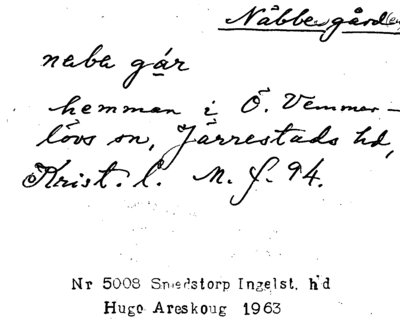 Nåbbegård
naba gár
hemman i Ö. Vemmer-
lövs sn, Järrestads hd,
Krist. l. M. f. 94.
Nr 5008 Smedstorp Ingelst. hd
Hugo Areskoug 1963